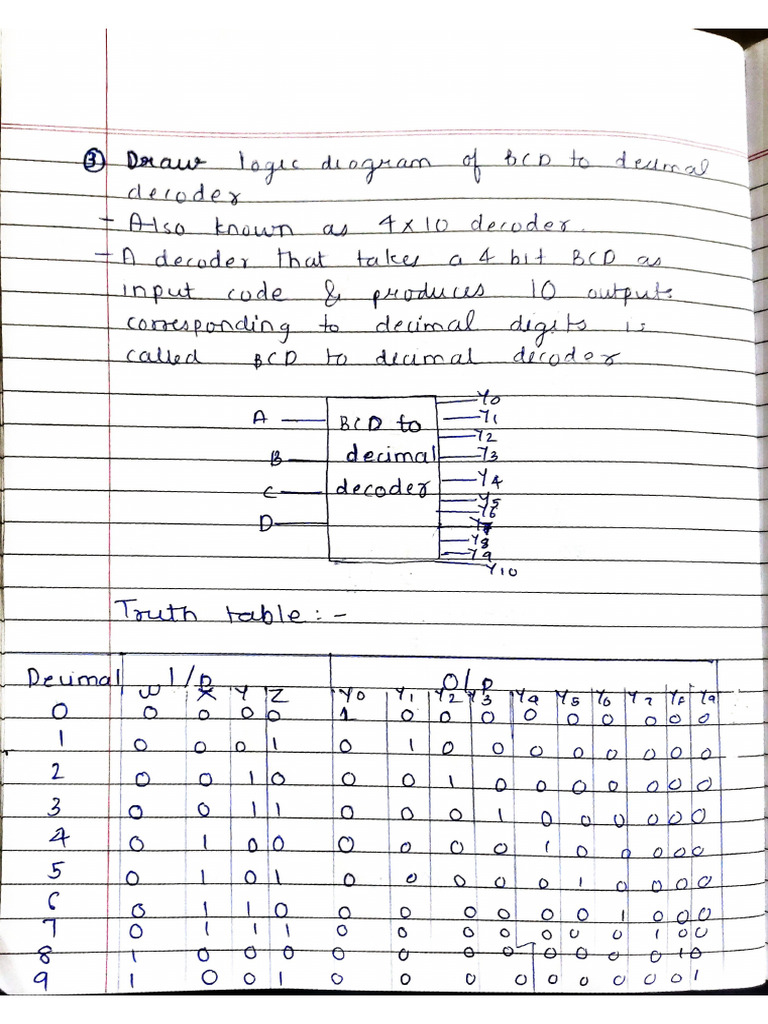 ③ Draw logic diagram of BCD to decimal
decoder
- Also known as 4x10 decoder.
- A decoder that takes a 4 bit BCD as
input code & produces 10 outputs
corresponding to decimal digits is
called BCD to decimal decoder
A
B
C
D
BCD to
decimal
decoder
Y0
Y1
Y2
Y3
Y4
Y5
Y6
Y7
Y8
Y9
Y10
Truth table :-
Decimal I/P O/P
W X Y Z Y0 Y1 Y2 Y3 Y4 Y5 Y6 Y7 Y8 Y9
0 0 0 0 0 1 0 0 0 0 0 0 0 0 0
1 0 0 0 1 0 1 0 0 0 0 0 0 0 0
2 0 0 1 0 0 0 1 0 0 0 0 0 0 0
3 0 0 1 1 0 0 0 1 0 0 0 0 0 0
4 0 1 0 0 0 0 0 0 1 0 0 0 0 0
5 0 1 0 1 0 0 0 0 0 1 0 0 0 0
6 0 1 1 0 0 0 0 0 0 0 1 0 0 0
7 0 1 1 1 0 0 0 0 0 0 0 1 0 0
8 1 0 0 0 0 0 0 0 0 0 0 0 1 0
9 1 0 0 1 0 0 0 0 0 0 0 0 0 1